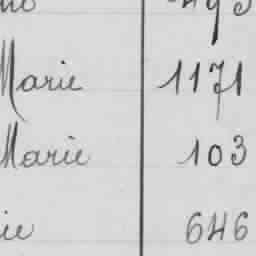 Marie 1171
Marie 103
646